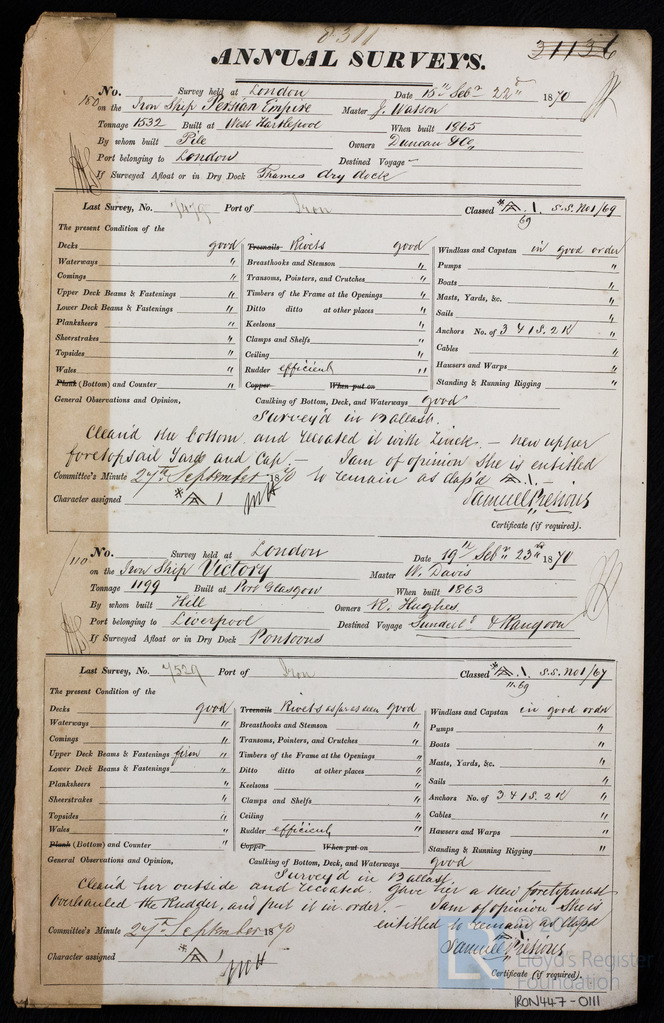 ANNUAL SURVEYS.
31136
No. Survey held at London Date 15th Sepr 22nd 1870
on the Iron Ship Persian Empire Master J. Watson
Tonnage 1532 Built at West Hartlepool When built 1865
By whom built Pile Owners Duncan & Co,
Port belonging to London Destined Voyage
If Surveyed Afloat or in Dry Dock Thames dry dock
Last Survey, No. Port of Iron Classed A 1. S.S. No 1/69
69
The present Condition of the
Decks good
Waterways "
Comings "
Upper Deck Beams & Fastenings "
Lower Deck Beams & Fastenings "
Planksheers "
Sheerstrakes "
Topsides "
Wales "
Plank (Bottom) and Counter "
Treenails Rivets good
Breasthooks and Stemson "
Transoms, Pointers, and Crutches "
Timbers of the Frame at the Openings "
Ditto ditto at other places "
Keelsons "
Clamps and Shelfs "
Ceiling "
Rudder efficient "
Copper When put on
Windlass and Capstan in good order
Pumps "
Boats "
Masts, Yards, &c. "
Sails "
Anchors No. of 3 4 1 S. 2 K "
Cables "
Hawsers and Warps "
Standing & Running Rigging "
General Observations and Opinion, Caulking of Bottom, Deck, and Waterways good
Survey'd in Ballast.
Clean'd the bottom and recoated it with Zinck. – new upper
foretopsail Yard and Cap. – I am of opinion She is entitled
Committee's Minute 27th September 1870 to remain as Clap'd A 1. –
Character assigned A 1
Certificate (if required).
110
No. Survey held at London Date 19th Sepr 23rd 1870
on the Iron Ship Victory Master W. Davis
Tonnage 1199 Built at Port Glasgow When built 1863
By whom built Hill Owners R. Hughes
Port belonging to Liverpool Destined Voyage Sunderld & Rangoon
If Surveyed Afloat or in Dry Dock Pontoons
Last Survey, No. 7529 Port of Iron Classed A 1. S.S. No 1/67
11.69
The present Condition of the
Decks good
Waterways "
Comings "
Upper Deck Beams & Fastenings "
Lower Deck Beams & Fastenings "
Planksheers "
Sheerstrakes "
Topsides "
Wales "
Plank (Bottom) and Counter "
Treenails Rivets as far as seen good
Breasthooks and Stemson "
Transoms, Pointers, and Crutches "
Timbers of the Frame at the Openings "
Ditto ditto at other places "
Keelsons "
Clamps and Shelfs "
Ceiling "
Rudder efficient "
Copper When put on
Windlass and Capstan in good order
Pumps "
Boats "
Masts, Yards, &c. "
Sails "
Anchors No. of 3 4 1 S. 2 K "
Cables "
Hawsers and Warps "
Standing & Running Rigging "
General Observations and Opinion, Caulking of Bottom, Deck, and Waterways good
Survey'd in Ballast.
Clean'd her outside and recoated. Gave her a new foretopmast
overhauled the Rudder, and put it in order. – I am of opinion She is
Committee's Minute 27th September 1870 entitled to remain as Clap'd
Character assigned A 1
Certificate (if required).
Lloyd's Register
Foundation
IRON447-0111